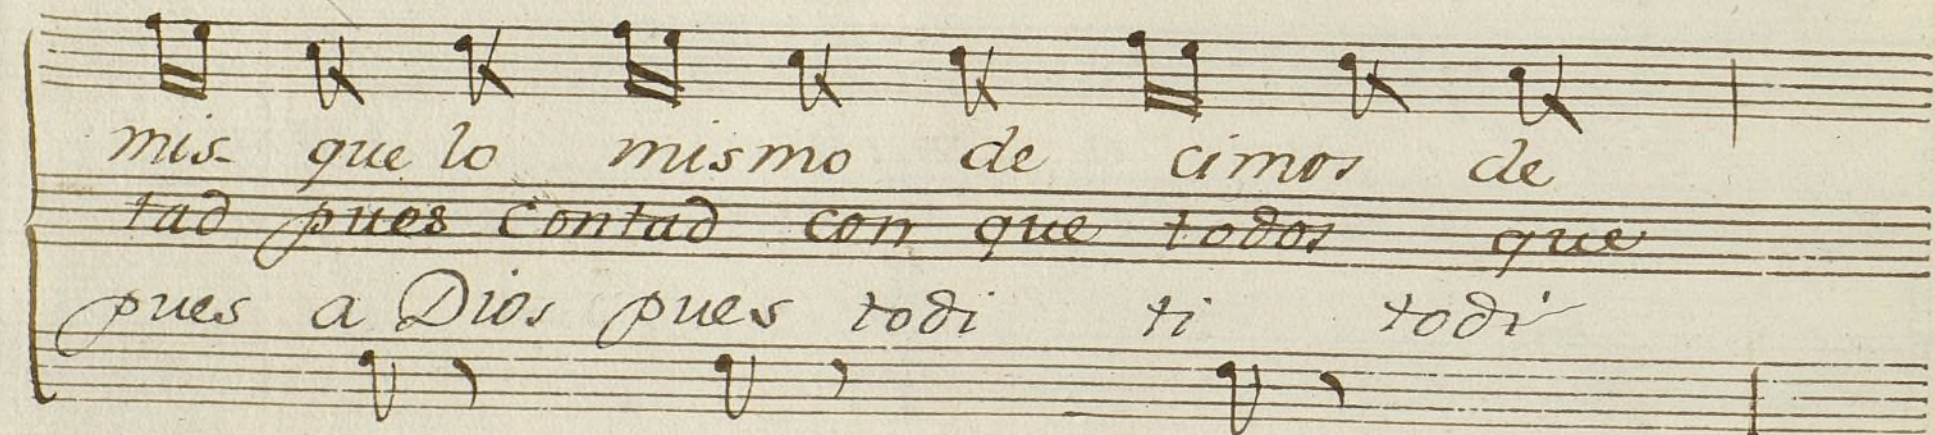 mis- que lo mismo de cimos de
tad pues contad con que todos que
pues a Dios pues todi ti todi